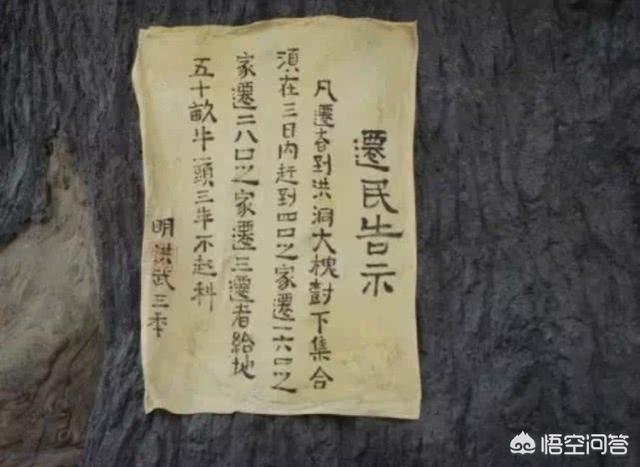 遷民告示
凡遷者到洪洞大槐樹下集合
須在三日内赶到四口之家遷一六口之
家遷二八口之家遷三遷者給地
五十畝牛一頭三年不起科
明洪武三年
悟空问答